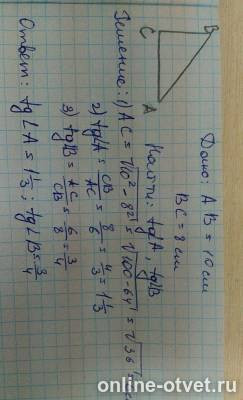 C B
A
Дано: AB = 10 см
BC = 8 см
Найти: tgA, tgB
Решение: 1) AC = √10² - 8² = √100 - 64 = √36
2) tgA = CB/AC = 8/6 = 4/3 = 1 1/3
3) tgB = AC/CB = 6/8 = 3/4
Ответ: tg∠A = 1 1/3; tg∠B = 3/4
online-otvet.ru